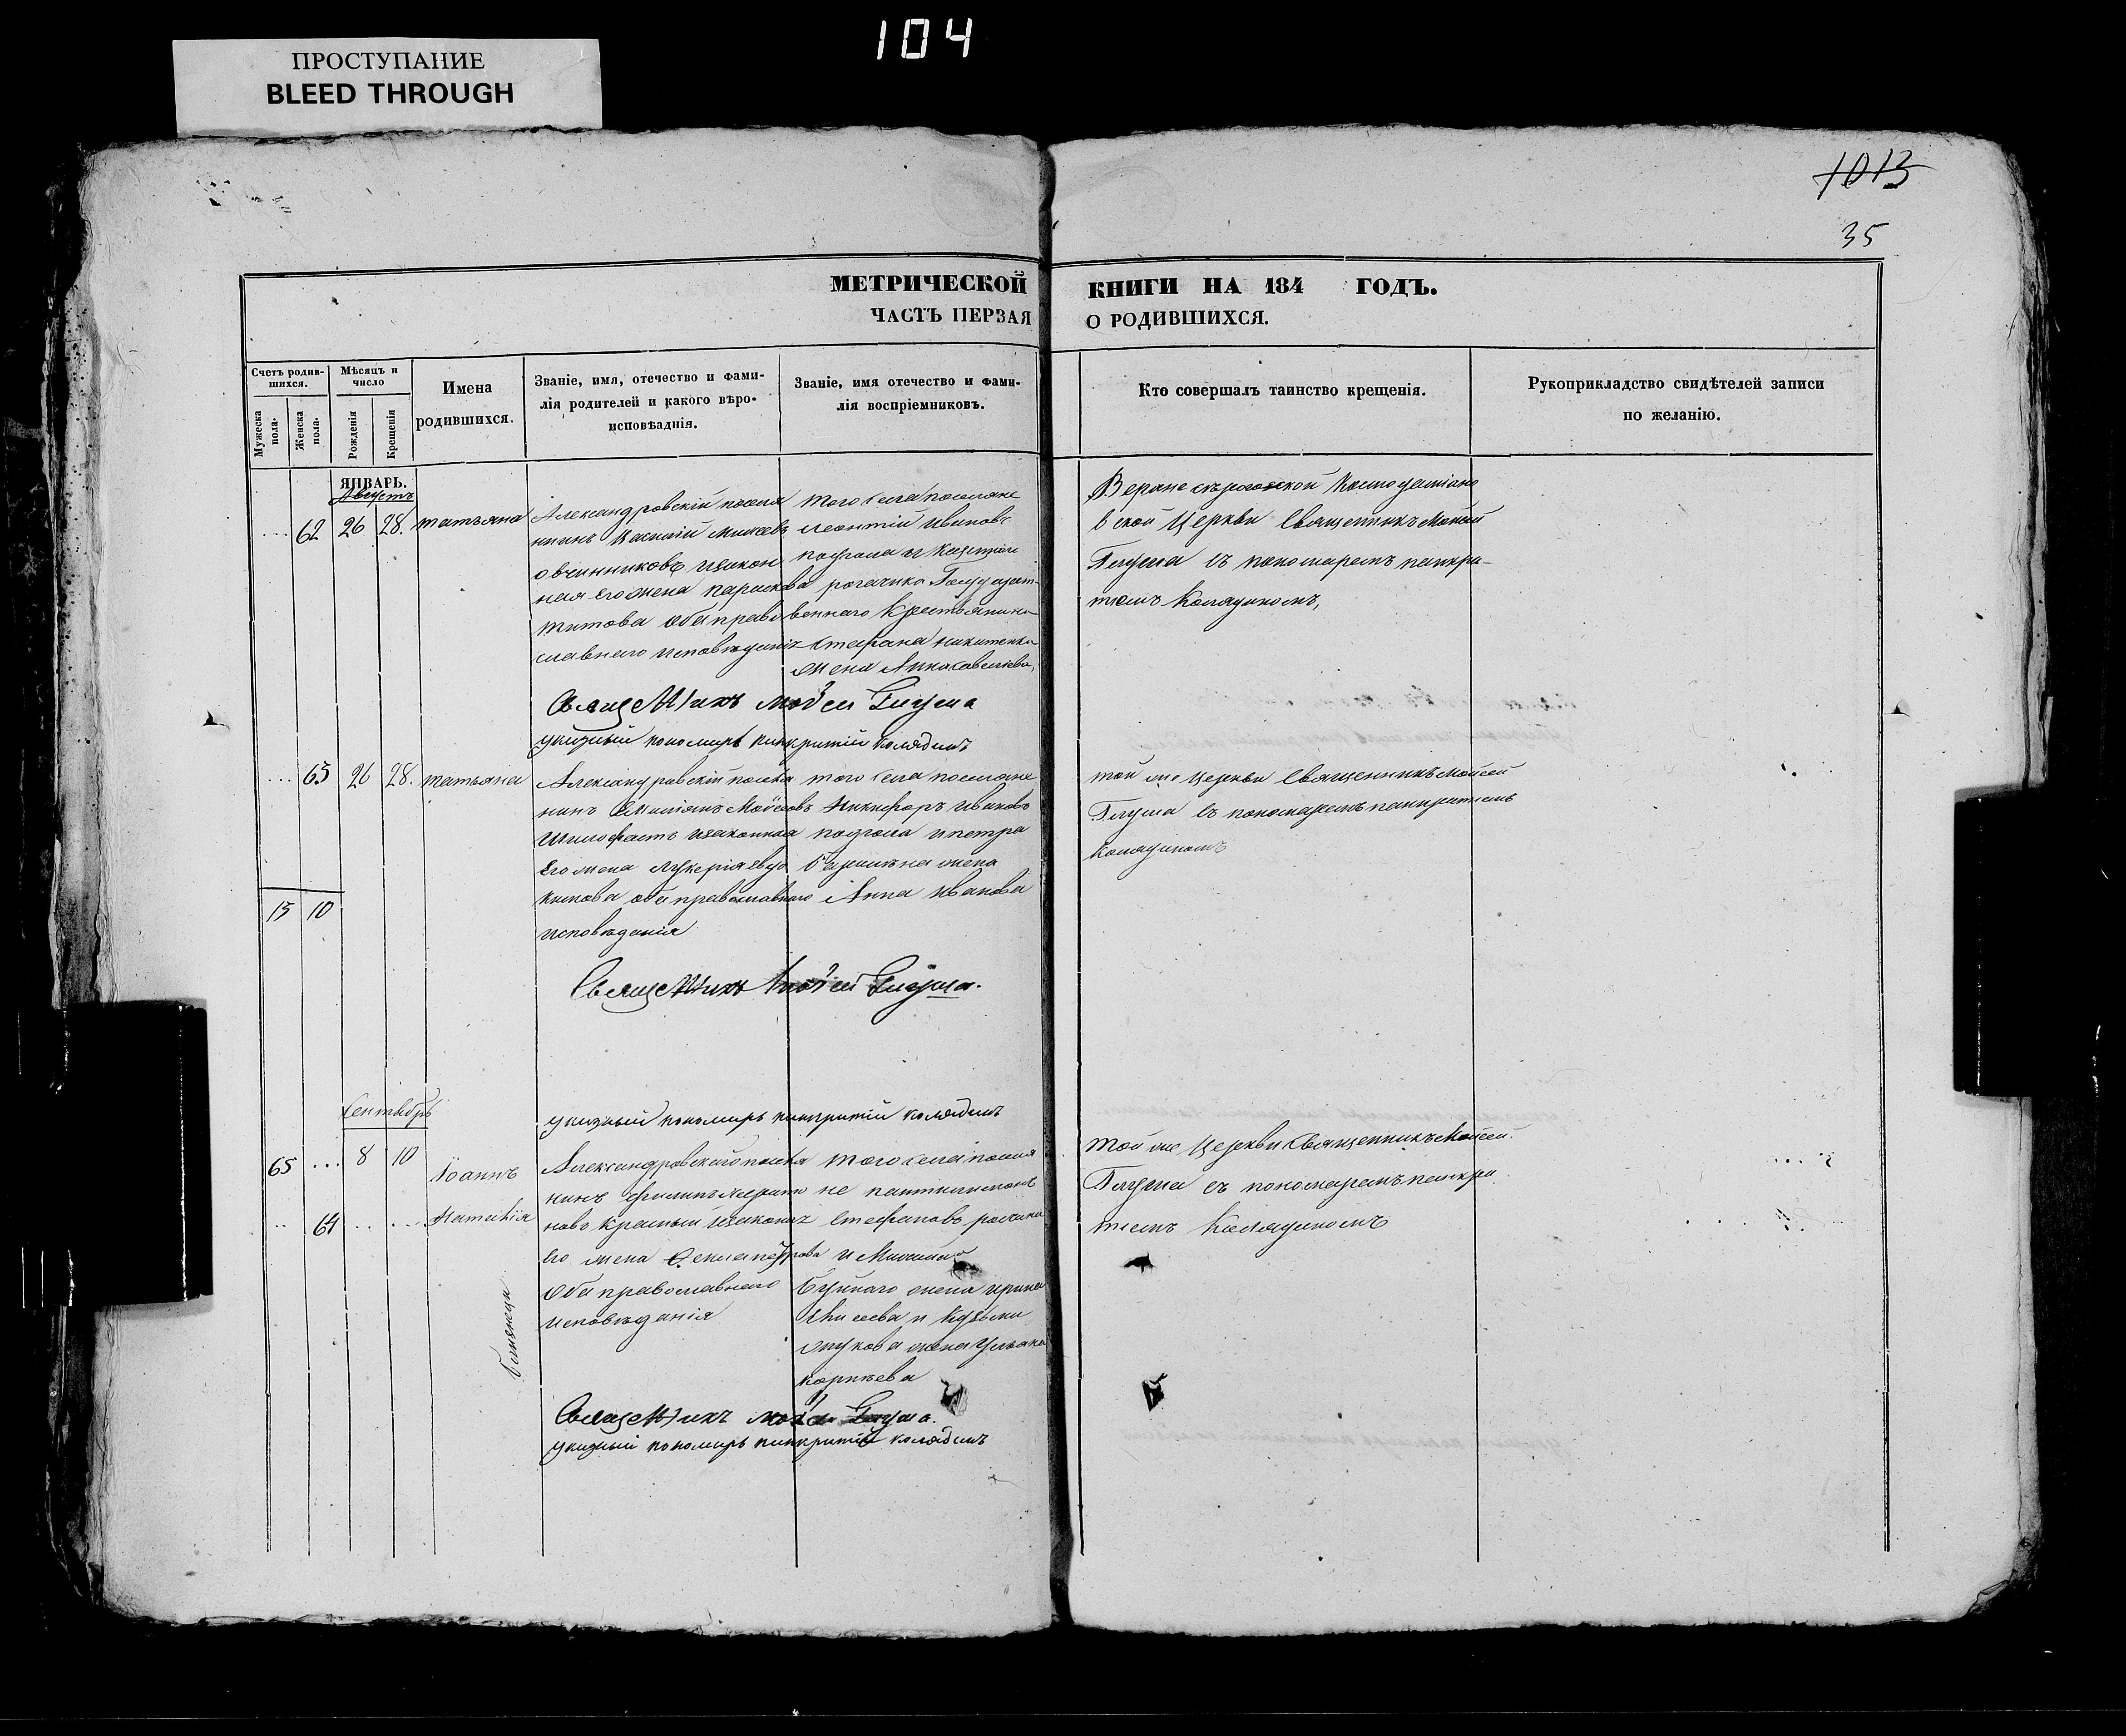 104
ПРОСТУПАНИЕ
BLEED THROUGH
1013
35
МЕТРИЧЕСКОЙ КНИГИ НА 184 ГОДЪ.
ЧАСТЬ ПЕРВАЯ О РОДИВШИХСЯ.
Счетъ родив-
шихся.
Мужеска пола.
Женска пола.
Мѣсяцъ и
число
Рожденія
Крещенія
Имена
родившихся.
Званіе, имя, отечество и фами-
лія родителей и какого вѣро-
исповѣаднія.
Званіе, имя отечество и фами-
лія воспріемниковъ.
Кто совершалъ таинство крещенія.
Рукоприкладство свидѣтелей записи
по желанію.
ЯНВАРЬ.
Августъ
62 26 28. татьяна
Александровскій поселя
нинъ Василій Михеевъ
овчинниковъ изакон
ная его жена параскева
титова оба право
славнаго исповѣданія
того села поселяне
леонтій ивановъ
рогачика Государст-
веннаго крестьянина
Стефана никитенка
жена Анна савельева,
Космодеміано
вской Церкви Священникъ Моисей
Глузма съ пономаремъ панкра-
тіемъ Колядикомъ,
Священникъ моѵсей Глузма
указный пономарь панкратій колядикъ
63 26 28. татьяна
Александровскій поселя
нинъ Емиліянъ Моѵсеевъ
изаконная
его жена Лукерія евдо
кимова оба православнаго
исповѣданія
того села поселяне
Никифоръ ивановъ
и петра
жена
Анна иванова
той же Церкви Священникъ Моисей
Глузма съ пономаремъ панкратіемъ
Колядикомъ
15 10
Священникъ Моѵсей Глузма.
указный пономарь панкратій колядикъ
Сентябрь
65 ... 8 10 Іоаннъ
.. 64 ... ... Наталія
близнецы
Александровскаго поселя
нинъ филипъ
новъ красный изаконная
его жена Фекла петрова
оба православнаго
исповѣданія
того села поселя
не пантилимонъ
Стефановъ
и Михаила
жена ирина
и кузьмы
жукова жена ульяна
корнѣева
той же Церкви Священникъ Моисей
Глузма съ пономаремъ панкра
тіемъ Колядикомъ
Священникъ моѵсей Глузма.
указный пономарь панкратій колядикъ